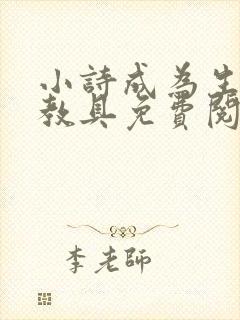 小詩成為生
教具免費閱
李老師